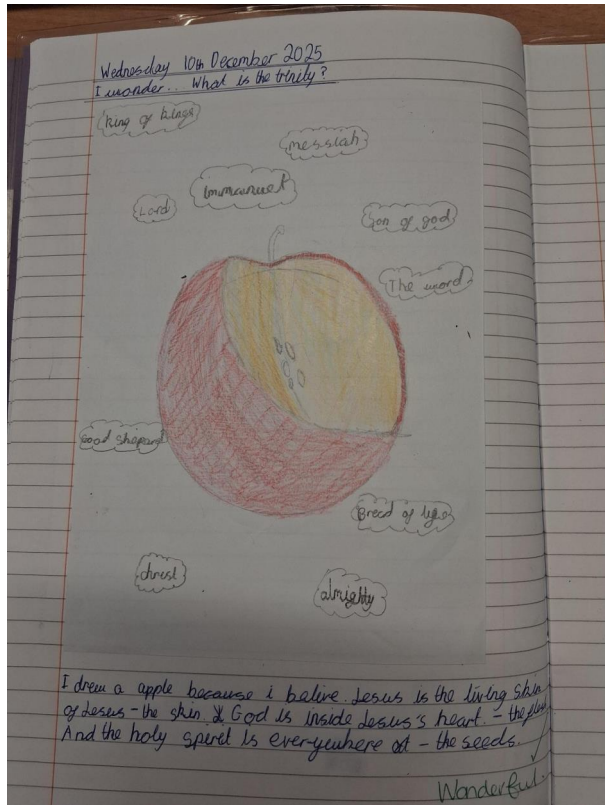 Wednesday 10th December 2025
I wonder... What is the trinity?
King of kings
messiah
Immanuel
Lord
Son of god
The word
Good shepard
Bread of life
christ
almighty
I drew a apple because i belive Jesus is the living skin
of Jesus - the skin. & God is inside Jesus's heart. - the
And the holy spiret is everywhere - the seeds.
Wonderful.